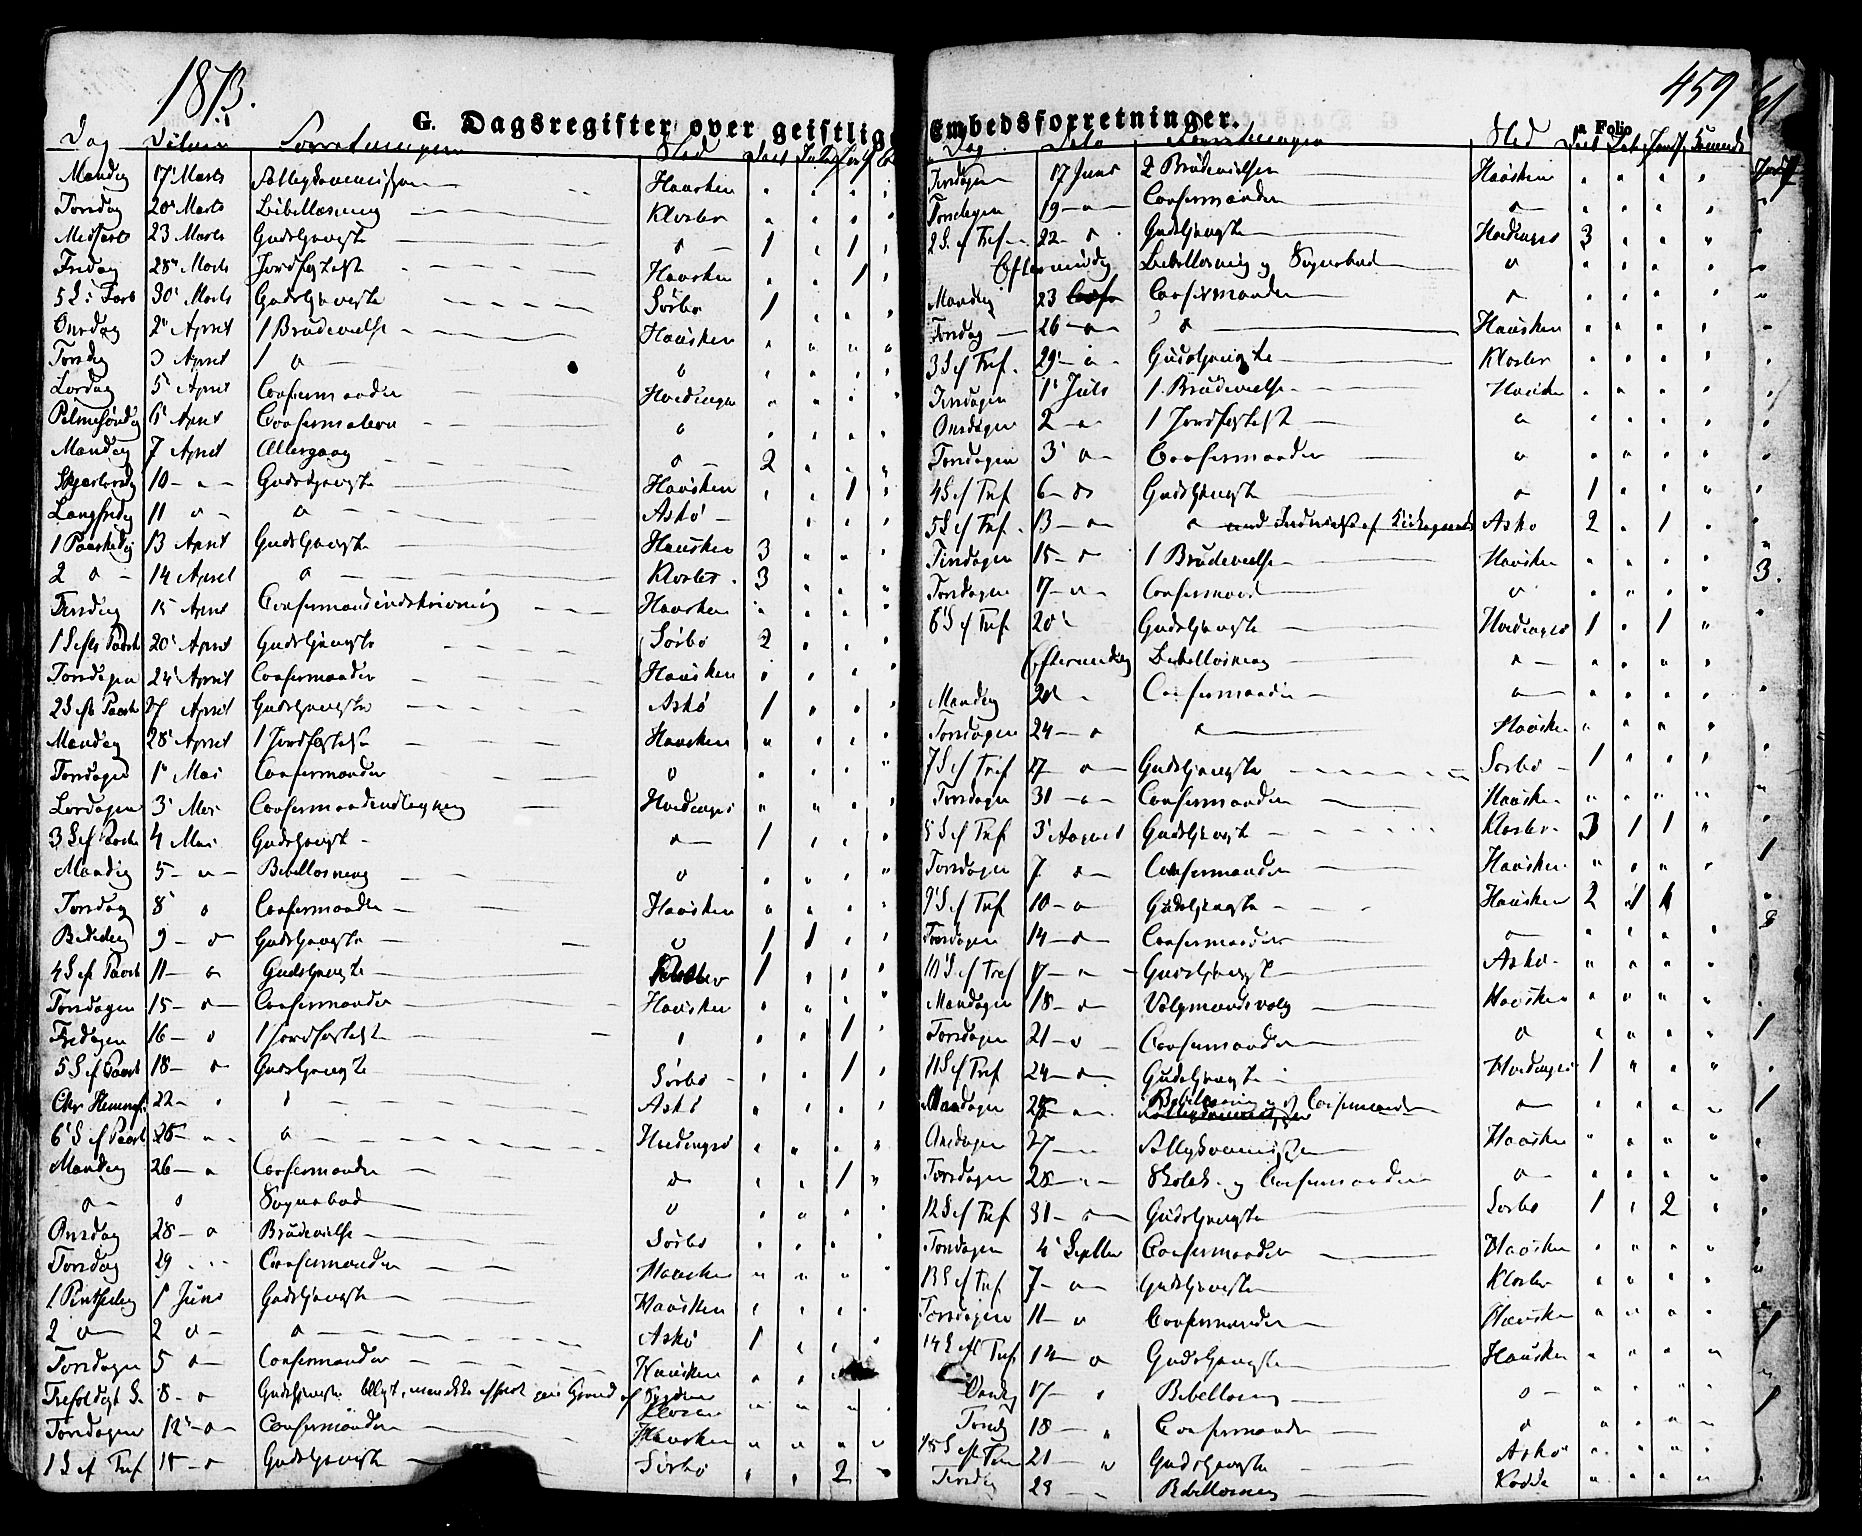 1873.
G. Dagsregister over geistlige
Dag Datum Forretningen Sted Døbt
Mandag 17 Marts Fattigkommission Hausken
Torsdag 20 Marts Bibellæsning Kloster
Midfaste 23 Marts Gudstjeneste do 1 1
Fredag 28 Marts Jordfæstelse Hausken 1
5 S. i Faste 30 Marts Gudstjeneste Sørbø 1
Onsdag 2 April 1 Brudevielse Hausken
Torsdag 3 April 1 do do
Lørdag 5 April Confirmander Hvidingsø
Palmesøndag 6 April Confirmation do
Mandag 7 April Altergang do 2
Skjærtorsdag 10 Gudstjeneste Hausken 1
Langfredag 11 do do Askø
1 Paaskedag 13 April Gudstjeneste Hausken 3
2 do 14 April do Kloster 3
Tirsdag 15 April Confirmandindskrivning Hausken
1 S. eft Paaske 20 April Gudstjeneste Sørbø 2
Torsdagen 24 April Confirmander Hausken
2 S. eft Paaske 27 April Gudstjeneste Askø 1
Mandag 28 April 1 Jordfæstelse Hausken
Torsdagen 1 Mai Confirmander do
Lørdagen 3 Mai Confirmandindtegning Hvidingsø
3 S. ef Paaske 4 Mai Gudstjenest do 1
Mandag 5 do Bibellæsning do
Torsdag 8 do Confirmander Hausken
Bededag 9 do Gudstjeneste do 1 1
4 S. ef Paaske 11 do Gudstjeneste Kloster 1
Torsdagen 15 do Confirmander Hausken
Fredagen 16 do 1 Jordfæstelse 1
5 S. ef Paaske 18 do Gudstjeneste Sørbø 1
Chr Himmelf. 22 Askø
6 S. ef Paaske 25 do Hvidingsø
Mandag 26 do Confirmander do 1
do do Sognebud do
Onsdag 28 do Brudevielse Sørbø
Torsdag 29 Confirmander Hausken
1 Pintsedag 1 Juni Gudstjeneste Hausken
2 do 2 do do Askø 1
Torsdagen 5 do Confirmander Hausken
Trefoldigh S. 8 do Gudstjeneste Kloster
Torsdagen 12 do Confirmander Hausken
1 S. ef Tref 15 do Gudstjeneste Sørbø 2
459
Embedsforretninger.
Folio
Dag Dato Forretningen Sted
Tirsdagen 17 Juni 2 Brudevielser Hausken
Torsdagen 19 do Confirmander do
2 S. ef Tref 22 do Gudstjeneste Hvidingsø 3
Eftermiddag Bibellæsning og Sognebud do
Mandag 23 Confirmander do
Torsdag 26 do do Hausken
3 S. ef Tref. 29 do Gudstjeneste Kloster
Tirsdagen 1 Juli 1 Brudevielse Hausken
Onsdagen 2 do 1 Jordfæstelse do
Torsdagen 3 do Confirmander do
4 S. ef Tref 6 do Gudstjeneste do 1
5 S. ef Tref. 13 do do med Indvielse af Kirkegaard Askø 2 1
Tirsdagen 15 do 1 Brudevielse Hausken
Torsdagen 17 do Confirmander do
6 S. ef Tref 20 Gudstjeneste Hvidingsø 1 1
Eftermiddag Bibellæsning do
Mandag 21 Confirmander do
Torsdagen 24 do do Hausken
7 S. ef Tref 27 do Gudstjeneste Sørbø 1
Torsdagen 31 do Confirmander Hausken
8 S. ef Tref 3 August Gudstjeneste Kloster 3 1 1
Torsdagen 7 do Confirmander Hausken
9 S. ef Tref 10 do Gudstjeneste Hausken 2 1 1
Torsdagen 14 do Confirmander do
10 S. ef Tref 17 do Gudstjeneste Askø
Mandagen 18 do Valgmandsvalg Hausken
Torsdagen 21 do Confirmander do
11 S. ef Tref 24 do Gudstjeneste Hvidingsø 1
Mandagen 25 do Bibellæsning og Confirmander do
Onsdagen 27 Fattigkommission Hausken
Torsdagen 28 Skolek. og Confirmander do
12 S. ef Tref 31 do Gudstjeneste Sørbø 1 2
Torsdagen 4 Septbr Confirmander Hausken
13 S. ef Tref 7 do Gudstjeneste Kloster
Torsdagen 11 do Confirmander Hausken
14 S. ef Tref 14 do Gudstjeneste Hausken
Onsdag 17 Bibellæsning do
Torsdag 18 Confirmander do
15 S. ef Tref 21 Gudstjeneste Askø
Tirsdag 23 Bibellæsning